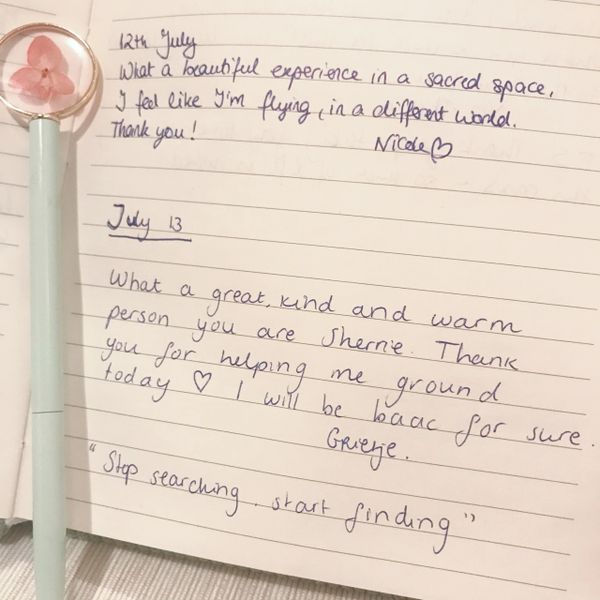 12th July
What a beautiful experience in a sacred space,
I feel like I'm flying, in a different world.
Thank you!
Nicole ♡
July 13
What a great, kind and warm
person you are Sherrie. Thank
you for helping me ground
today ♡ I will be baac for sure.
Grietje.
"Stop searching. start finding"